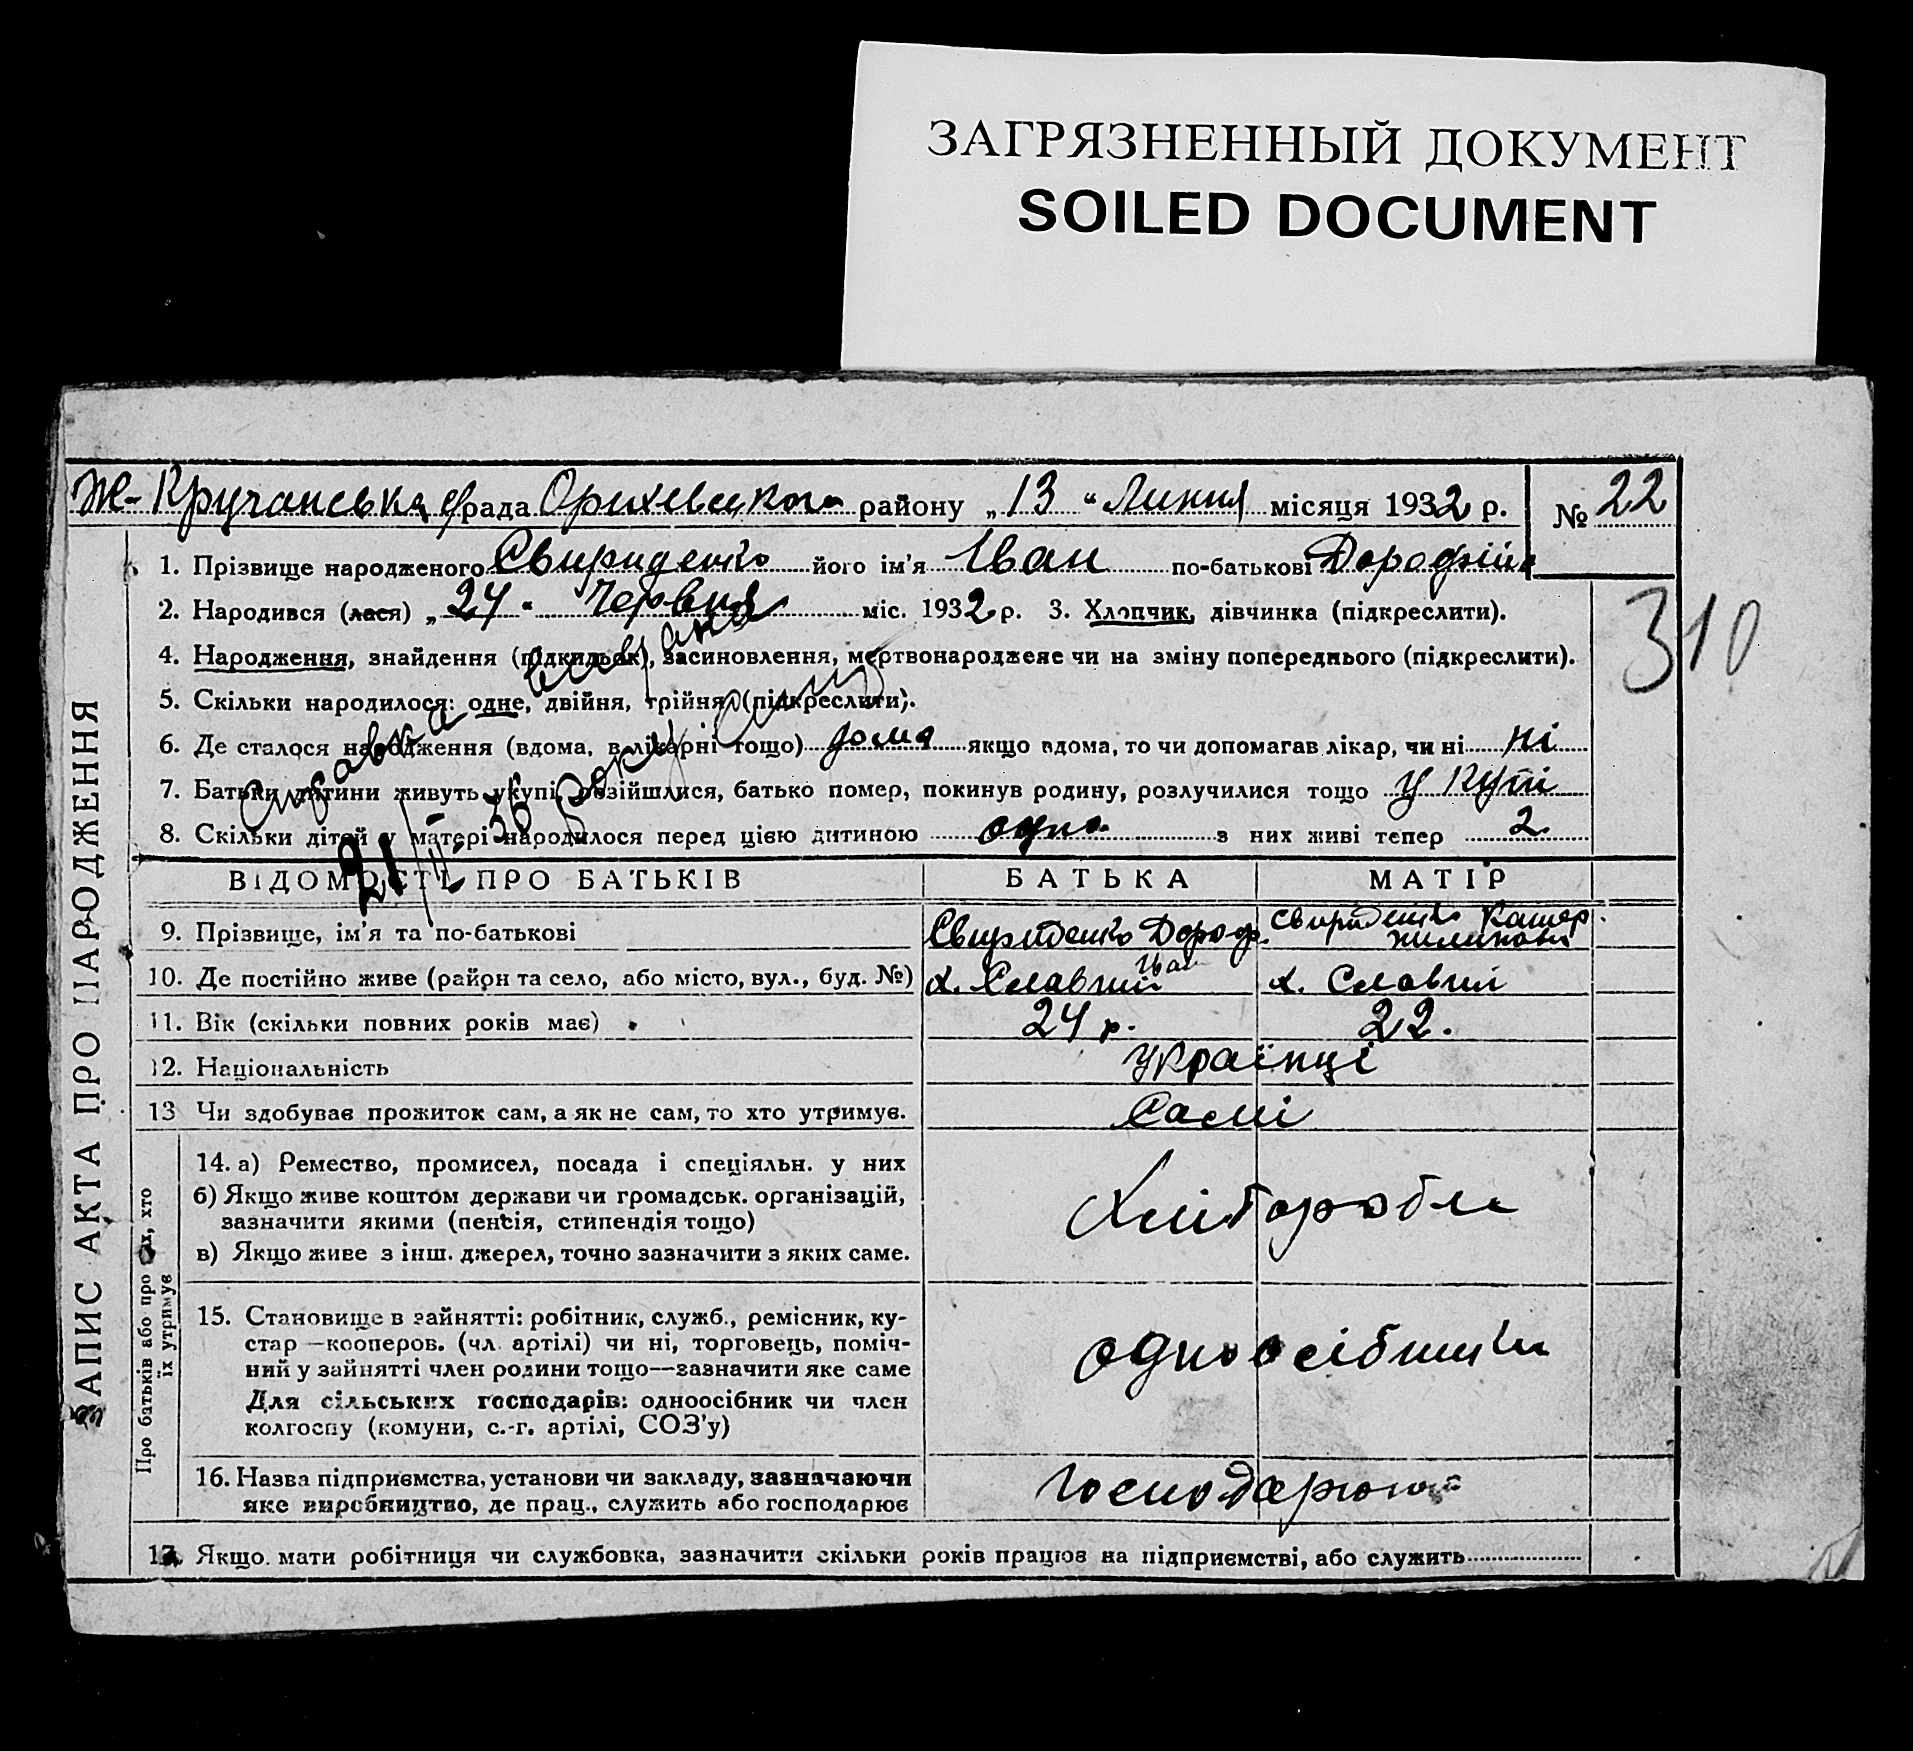 ЗАГРЯЗНЕННЫЙ ДОКУМЕНТ
SOILED DOCUMENT
Ж-Кручанська с/рада Оріхівського району „13“ Липня місяця 1932 р. № 22
1. Прізвище народженого Свириденко його ім'я Іван по-батькові Дорофійов
310
2. Народився (лася) „24“ Червня міс. 1932 р. 3. Хлопчик, дівчинка (підкреслити).
4. Народження, знайдення (підкидьок), засиновлення, мертвонароджене чи на зміну попереднього (підкреслити).
5. Скільки народилося: одне, двійня, трійня (підкреслити).
6. Де сталося народження (вдома, в лікарні тощо) дома якщо вдома, то чи допомагав лікар, чи ні ні
7. Батьки дитини живуть укупі, розійшлися, батько помер, покинув родину, розлучилися тощо у купі
8. Скільки дітей у матері народилося перед цією дитиною одно з них живі тепер 2.
Справка видана
21/II 36 року
ВІДОМОСТІ ПРО БАТЬКІВ БАТЬКА МАТІР
9. Прізвище, ім'я та по-батькові Свириденко Дороф. Іван Свириденко Катер.
10. Де постійно живе (район та село, або місто, вул., буд. №) х. Славний х. Славний
11. Вік (скільки повних років має) 24 р. 22.
12. Національність Українці
13 Чи здобуває прожиток сам, а як не сам, то хто утримує. Самі
14. а) Ремество, промисел, посада і спеціяльн. у них
б) Якщо живе коштом держави чи громадськ. організацій,
зазначити якими (пенсія, стипендія тощо)
в) Якщо живе з інш. джерел, точно зазначити з яких саме.
Хлібороби
15. Становище в зайнятті: робітник, служб., ремісник, ку-
стар—кооперов. (чл. артілі) чи ні, торговець, поміч-
ний у зайнятті член родини тощо—зазначити яке саме
Для сільських господарів: одноосібник чи член
колгоспу (комуни, с.-г. артілі, СОЗ'у)
одноосібники
16. Назва підприємства, установи чи закладу, зазначаючи
яке виробництво, де прац., служить або господарює
господарюють
17. Якщо мати робітниця чи службовка, зазначити скільки років працює на підприємстві, або служить
ЗАПИС АКТА ПРО НАРОДЖЕННЯ
Про батьків або про тих, хто
їх утримує